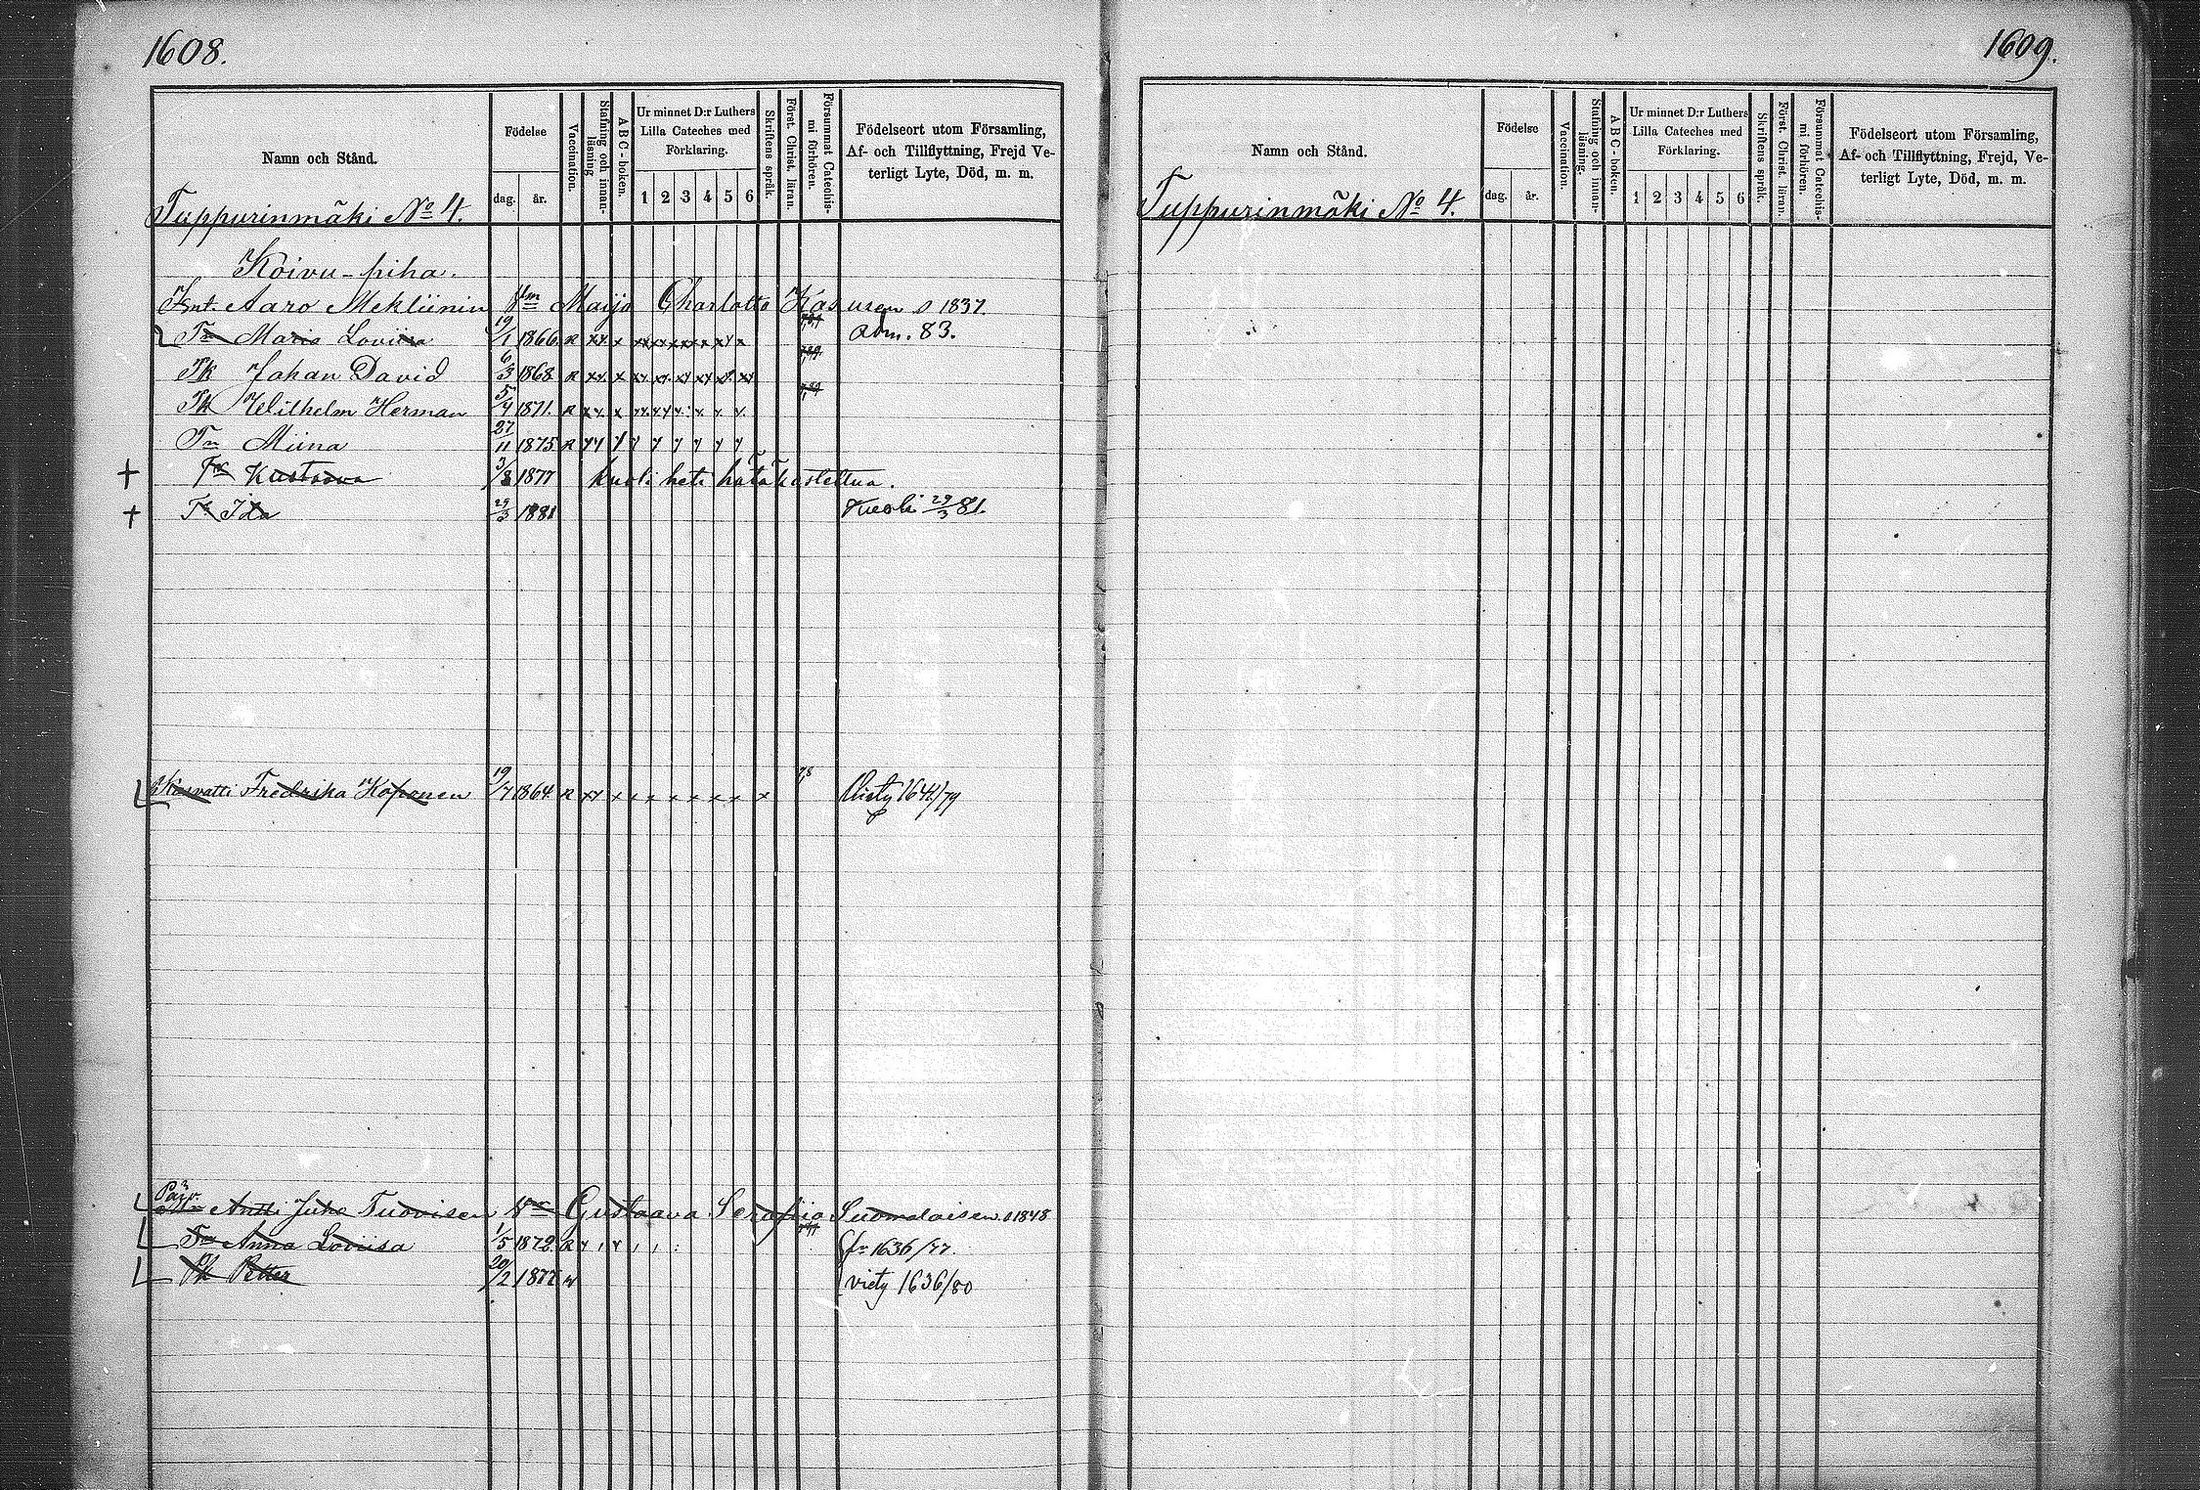 1608.
Namn och Stånd.
Födelse
dag.
år.
Vaccination.
Stafning och innan-läsning
A B C - boken.
Ur minnet D:r Luthers
Lilla Cateches med
Förklaring.
1 2 3 4 5 6
Skriftens språk.
Först. Christ. läran.
Försummat Catechis-mi förhören.
Födelseort utom Församling,
Af- och Tillflyttning, Frejd Ve-
terligt Lyte, Död, m. m.
Tuppurinmäki No 4.
Koivu-piha.
Aaro Mekliinin Maija Charlotta s 1837.
Maria Loviisa 19/1 1866 R Adm. 83.
Johan David 6/3 1868 R
Wilhelm Herman 5/4 1871. R
Miina 27/11 1875 R
+ Kustaava 3/3 1877 kuoli heti hätäkastettua.
+ Ida 29/3 1881 Kuoli 29/3 81.
Kasvatti Fredrika Koponen 19/7 1864 R 78 1644/79
Antti Juho Tuovisen Gustaava Serafiia Suomalaisen s 1848
Anna Loviisa 1/5 1872 R fr 1636/77.
Pk Petter 20/2 1877 viety 1636/80
1609.
Namn och Stånd.
Födelse
dag.
år.
Vaccination.
Stafning och innan-läsning.
A B C - boken.
Ur minnet D:r Luthers
Lilla Cateches med
Förklaring.
1 2 3 4 5 6
Skriftens språk.
Först. Christ. läran.
Försummat Catechis-mi. förhören.
Födelseort utom Församling,
Af- och Tillflyttning, Frejd, Ve-
terligt Lyte, Död, m. m.
Tuppurinmäki No 4.